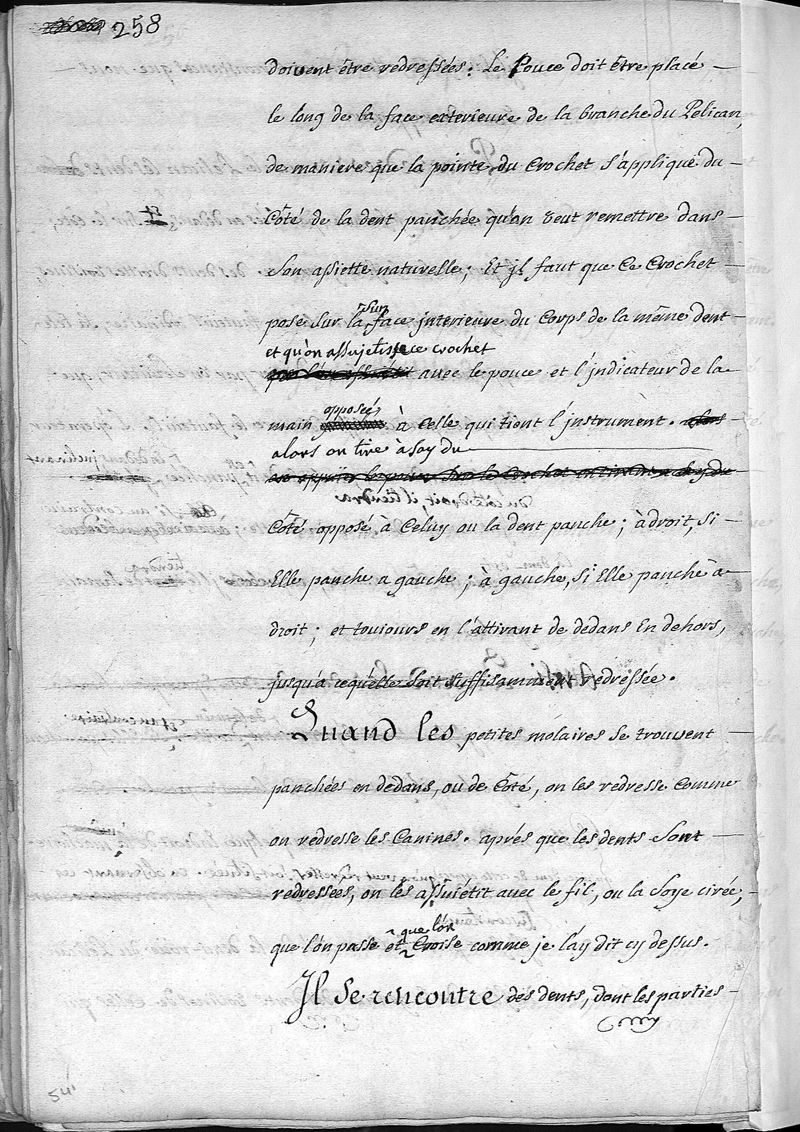 258
doivent être redressées. Le Pouce doit être placé
le long de la face exterieure de la branche du Pelican,
de maniere que la pointe du Crochet s'applique du
Côté de la dent panchée qu'on veut remettre dans
Son assiette naturelle; Et jl faut que Ce Crochet
pose Sur la face jnterieure du Corps de la même dent
et qu'on assujetisse ce crochet
avec le pouce et l'jndicateur de la
opposée
main à Celle qui tient l'jnstrument.
alors on tire à soy du
Côté opposé à Celuy ou la dent panche; à droit, Si
Elle panche a gauche; à gauche, Si Elle panche à
droit; et toujours en l'attirant de dedans En dehors,
jusqu'à ce quelle soit suffisamment redressée.
Quand les petites molaires se trouvent
panchées en dedans, ou de Côté, on les redresse Comme
on redresse les Canines. aprés que les dents Sont
redressées, on les assujetit avec le fil, ou la Soye cirée,
que l'on
que l'on passe et Croise comme je l'ay dit cy dessus.
Jl Se rencontre des dents, dont les parties
54